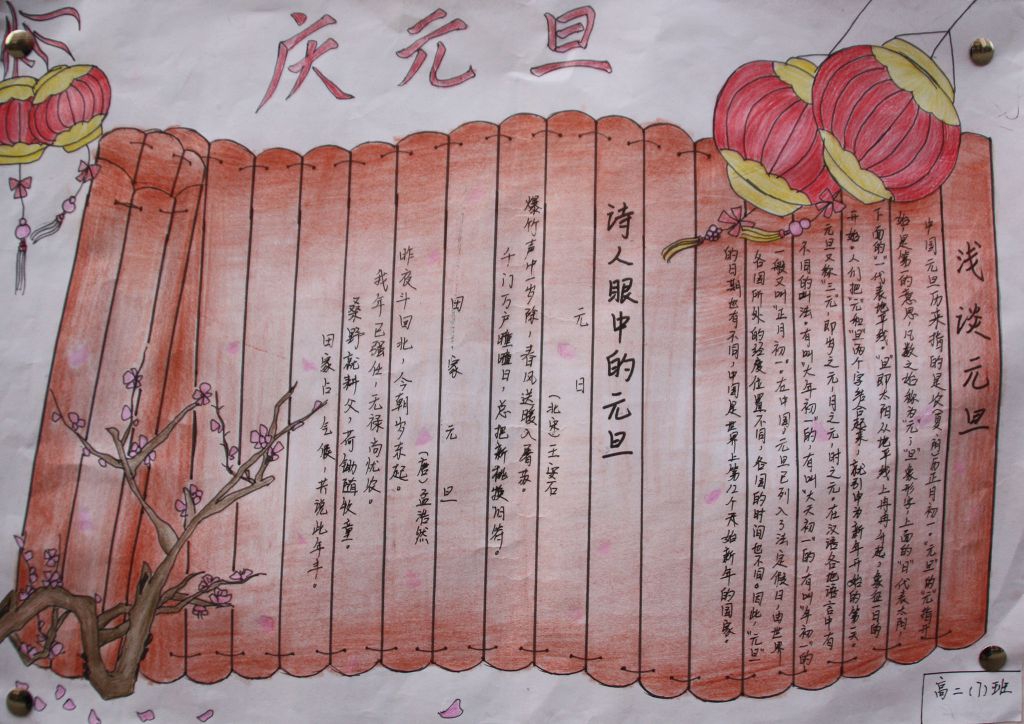 庆元旦
浅谈元旦
中国元旦历来指的是农(夏雨)历正月初一。“元旦”的“元”指开
始是第一的意思,凡数之始称为“元”;“旦”象形字,上面的“日”代表太阳,
下面的“一”代表地平线。“旦”即太阳从地平线上冉冉升起,象征一日的
开始。人们把“元和旦”两个字结合起来,就引申为新年开始的第一天。
元旦又称“三元”,即岁之元,月之元,时之元。在汉语各地语言中有
不同的叫法。有叫“大年初一”的,有叫“大天初一”的,有叫“年初一”的
一般又叫“正月初一”。在中国,元旦已列入了法定假日,由世界
各国所处的经度位置不同,各国的时间也不同。因此,“元旦”
的日期也有不同,中国是世界上第12个开始新年的国家。
诗人眼中的元旦
元日
(北宋)王安石
爆竹声中一岁除,春风送暖入屠苏。
千门万户曈曈日,总把新桃换旧符。
田家元旦
(唐)孟浩然
昨夜斗回北,今朝岁东起。
我年已强仕,无禄尚忧农。
桑野就耕父,荷锄随牧童。
田家占气候,共说此年丰。
高二(7)班